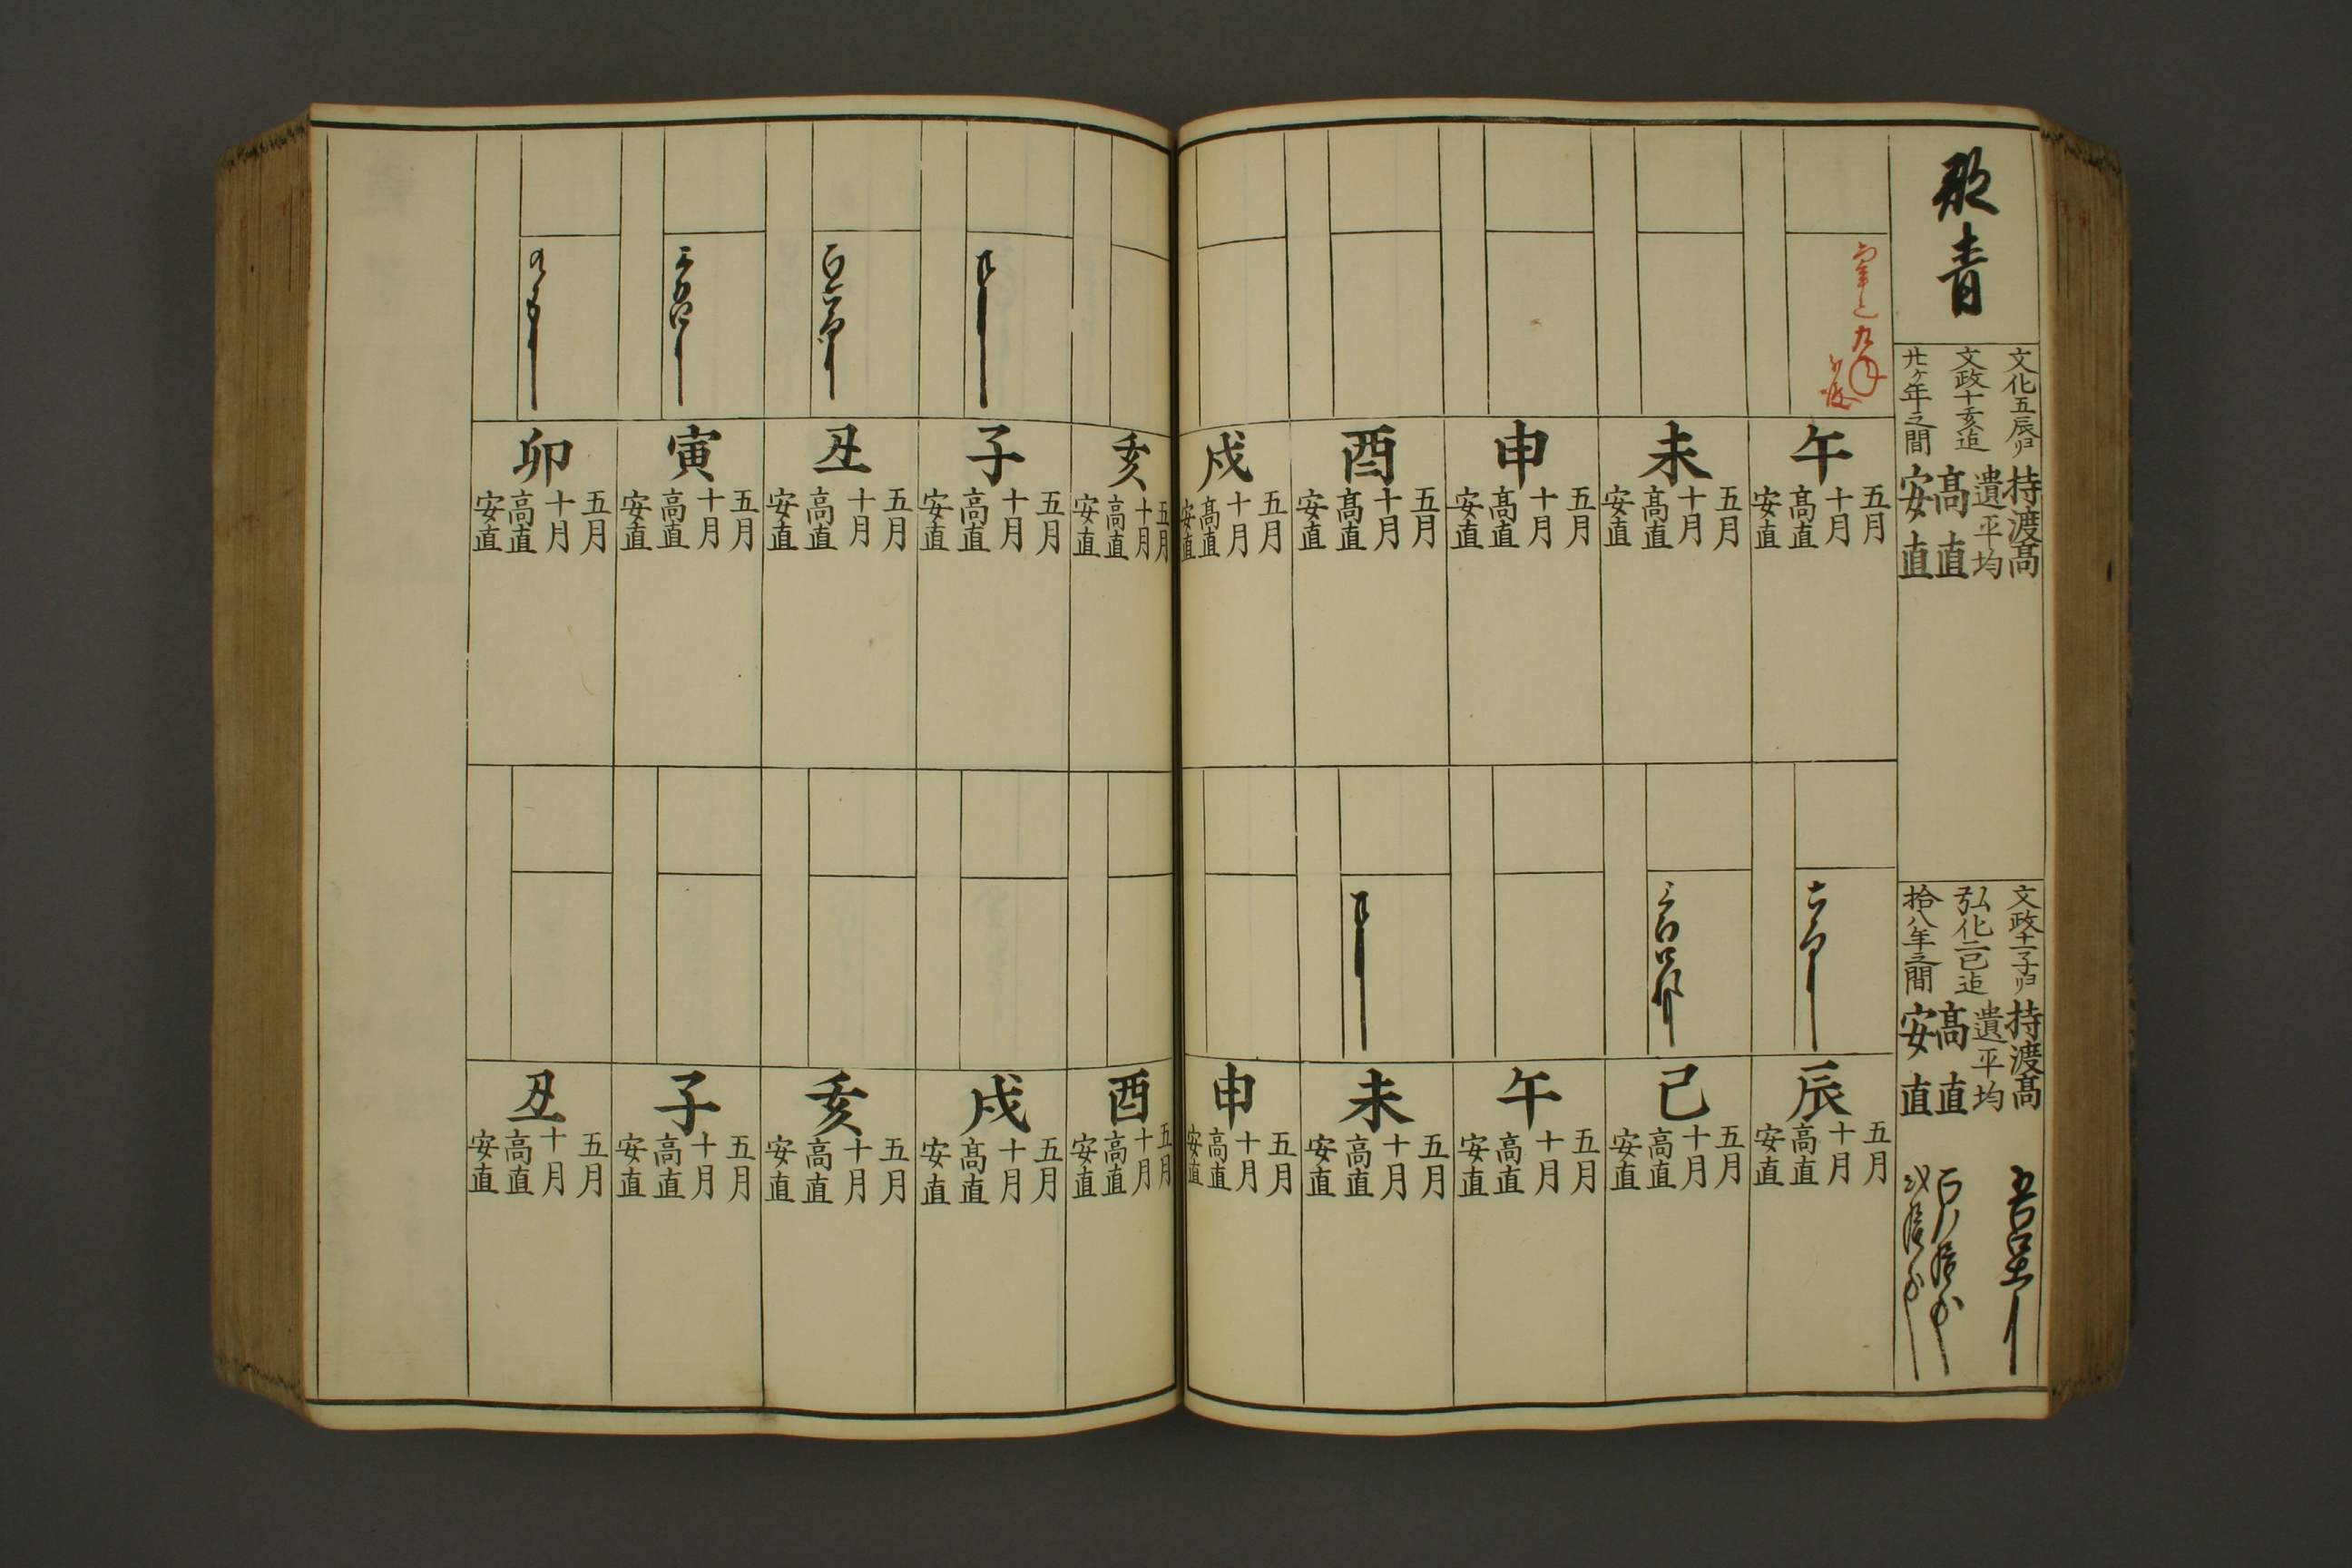 青
文化五辰ゟ
文政十亥迄
廿ヶ年之間
持渡高
遺平均
高直
安直
文政十一子ゟ
弘化二巳迄
拾八年之間
持渡高
遺平均
高直
安直
午
五月
十月
高直
安直
未
五月
十月
高直
安直
申
五月
十月
高直
安直
酉
五月
十月
高直
安直
戌
五月
十月
高直
安直
辰
五月
十月
高直
安直
巳
五月
十月
高直
安直
午
五月
十月
高直
安直
未
五月
十月
高直
安直
申
五月
十月
高直
安直
亥
五月
十月
高直
安直
子
五月
十月
高直
安直
丑
五月
十月
高直
安直
寅
五月
十月
高直
安直
卯
五月
十月
高直
安直
酉
五月
十月
高直
安直
戌
五月
十月
高直
安直
亥
五月
十月
高直
安直
子
五月
十月
高直
安直
丑
五月
十月
高直
安直